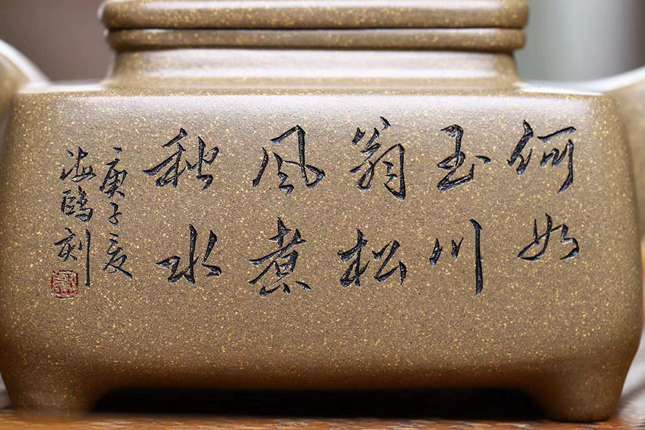 何如
玉川
翁松
風煮
秋水
庚子夏
海鸥刻